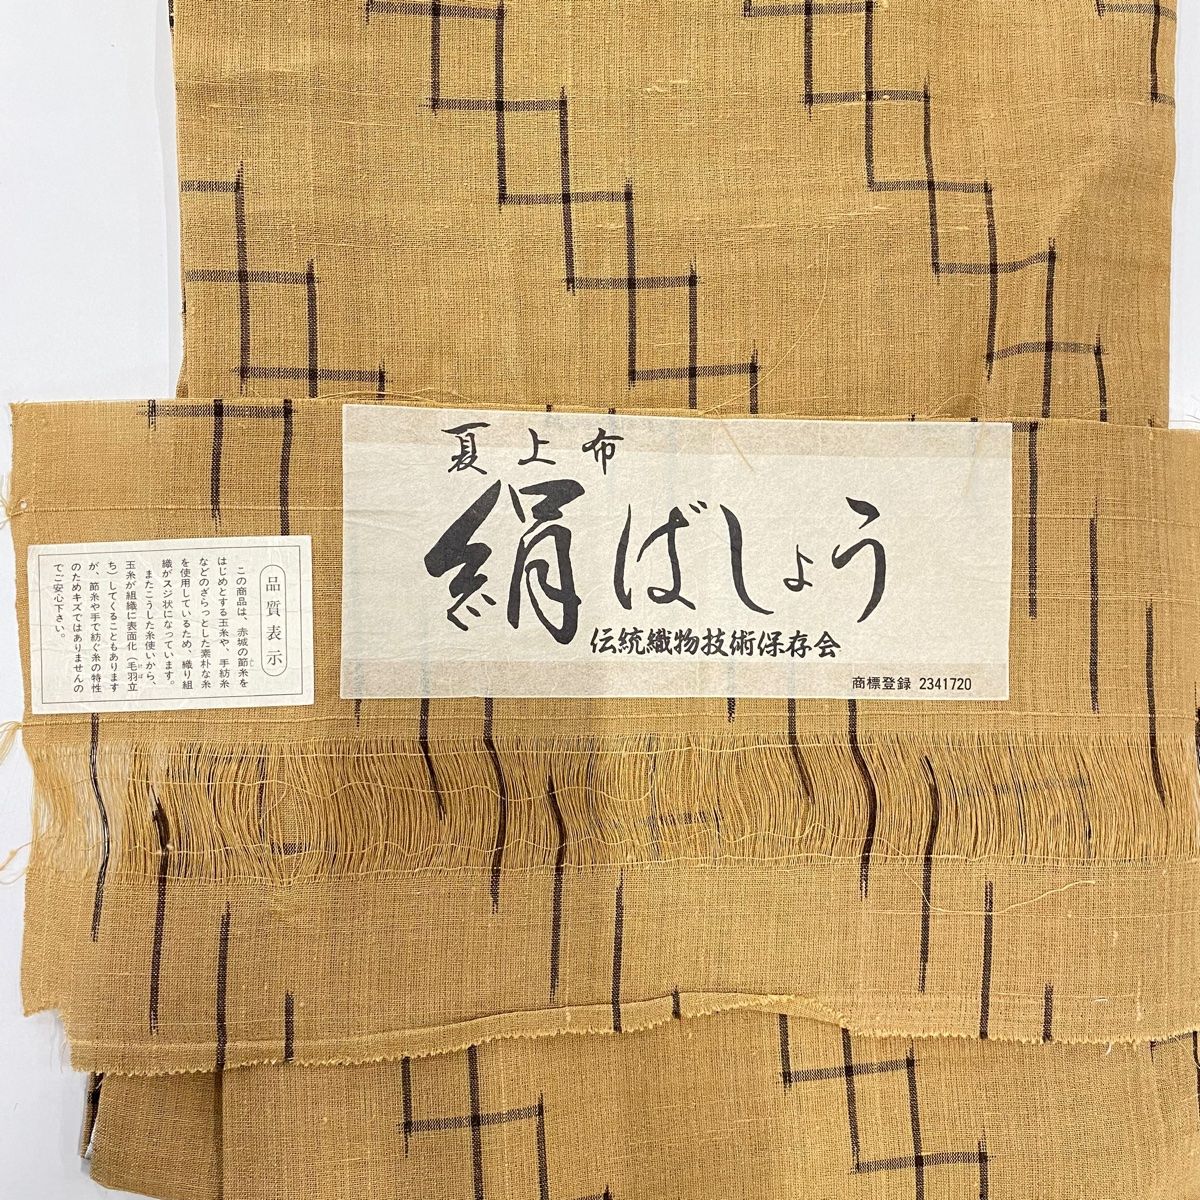 夏上布
絹ばしょう
伝統織物技術保存会
商標登録 2341720
品質表示
この商品は、赤城の節糸を
はじめとする玉糸や、手紡糸
などのざらっとした素朴な糸
を使用しているため、織り組
織がスジ状になっています。
またこうした糸使いから、
玉糸が組織に表面化（毛羽立
ち）してくることもあります
が、節糸や手で紡ぐ糸の特性
のためキズではありませんの
でご安心下さい。